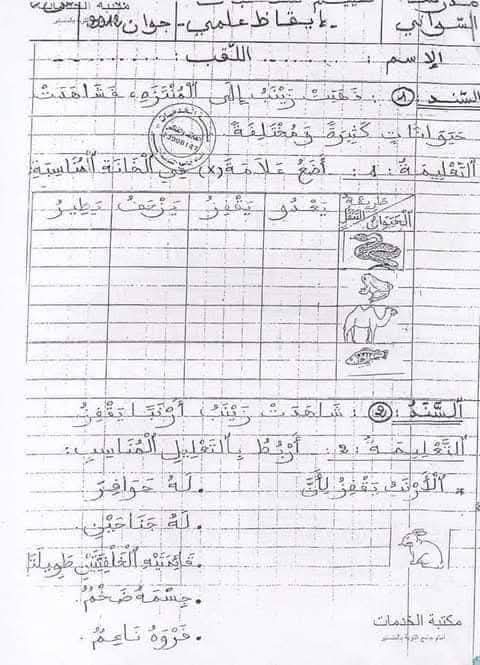 مكتبة الخدمات
السواني
إيقاظ علمي - جوان 2018
الإسم : .......... اللّقب : ..........
السند 1 : ذَهَبَتْ زَيْنَبُ إِلَى الْمُنْتَزَهِ فَشَاهَدَتْ
حَيَوَانَاتٍ كَثِيرَةً وَمُخْتَلِفَةً
التَّعْلِيمَةُ : 1 : أَضَعُ عَلَامَةَ (x) فِي الْخَانَةِ الْمُنَاسِبَةِ
الحَيَوَانُ التَّنَقُّل يَعْدُو يَقْفِزُ يَزْحَفُ يَطِيرُ
السَّنَدُ : 2 : شَاهَدَتْ زَيْنَبُ أَرْنَبًا يَقْفِزُ
التَّعْلِيمَةُ : 2 : أَرْبُطُ بِالتَّعْلِيلِ الْمُنَاسِبِ :
* الْأَرْنَبُ يَقْفِزُ لِأَنَّ . لَهُ حَوَافِرَ
. لَهُ جَنَاحَيْنِ
. قَائِمَتَيْهِ الْخَلْفِيَّتَيْنِ طَوِيلَتَا
. جِسْمَهُ ضَخْمٌ
. فَرْوَهُ نَاعِمٌ
مكتبة الخدمات